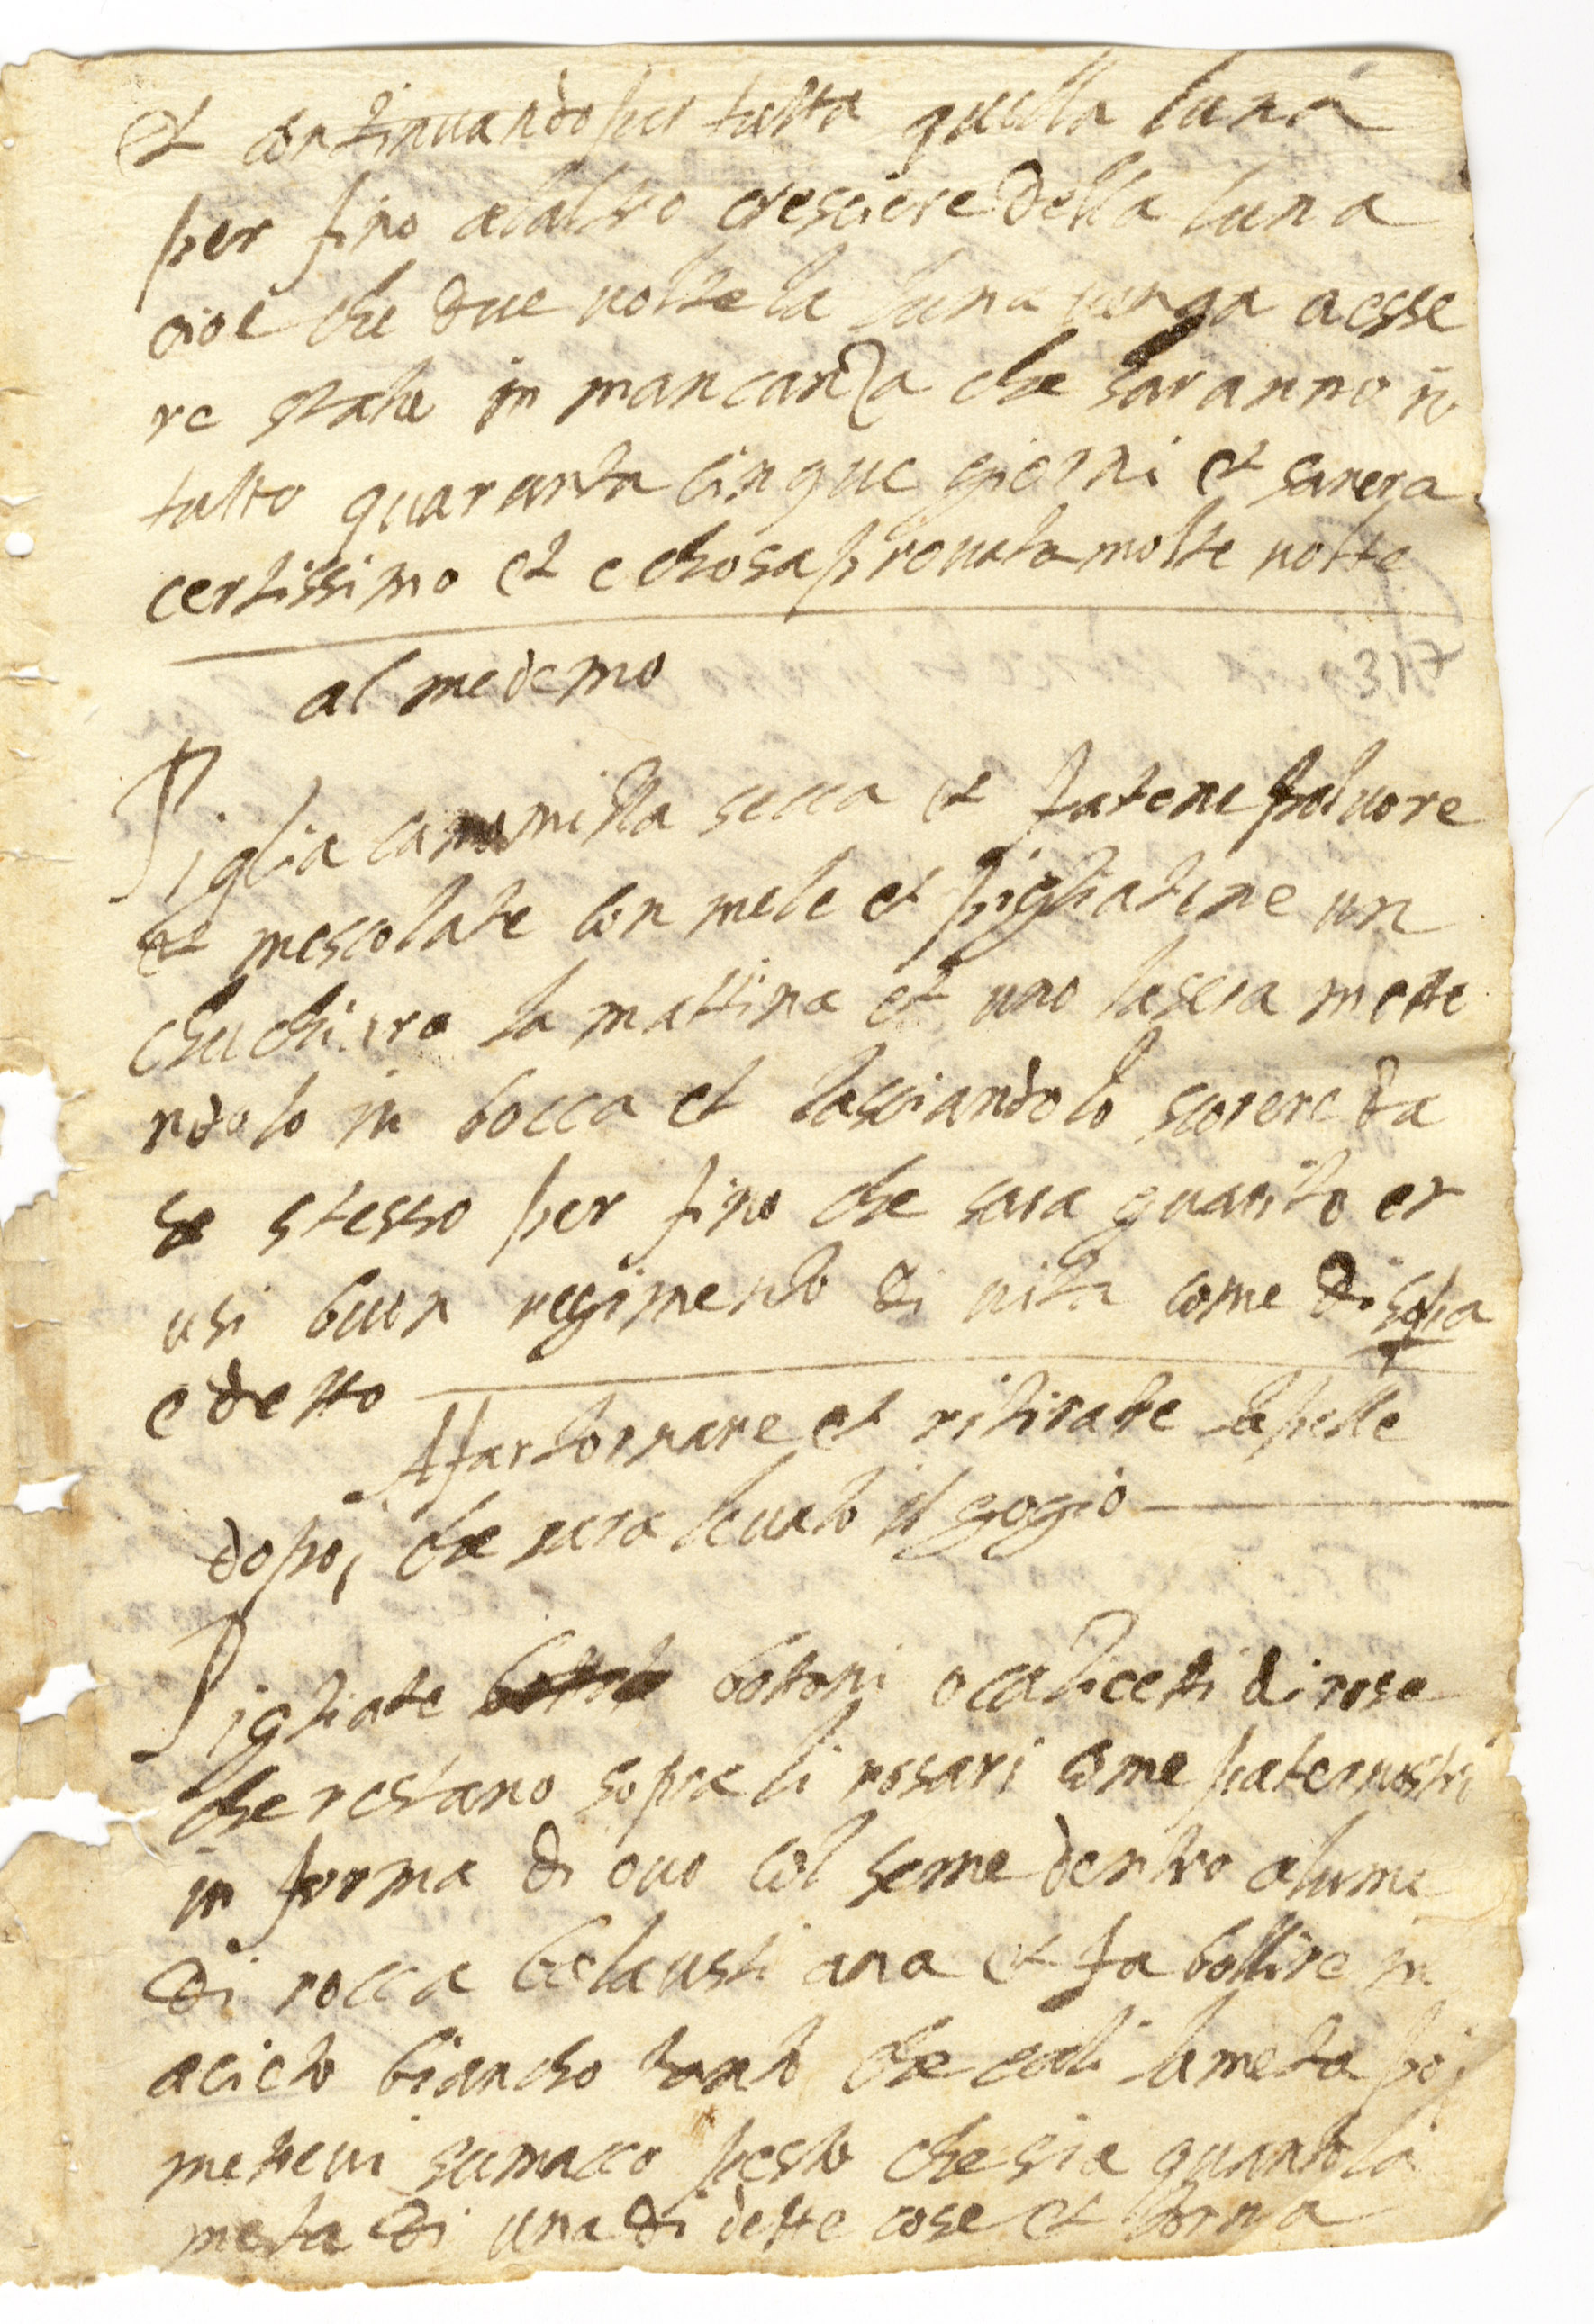 et continuando per tutta quella luna
per fino alaltro cresciere della luna
cioe che due volte la luna venga a esse
re state in mancanza che saranno in
tutto quaranta cinque giorni et sanera
certissimo et e chosa provata molte volte
al medemo
317
Piglia camomilla secca et fatene polvore
et mescolate con mele et pigliatene un
chuchiaro la mattina et uno lasera mette
ndolo in bocca et lassciandolo scorere da
se stesso per fino che sara guarito et
usi buon regimento di vita come di sopra
e detto
A far tornare et ritirare la pelle
dopo, che sara levato il gogio
Pigliate bottoni o calicetti di rose
che restano sopra li rosari come paternostri
in forma di ovo col seme dentro alume
di rocca balausti ana et fa bollire in
acieto biancho tanto che cali la meta poi
metevi sumacco pesto che sia quanto la
meta di una di dette cose et torna